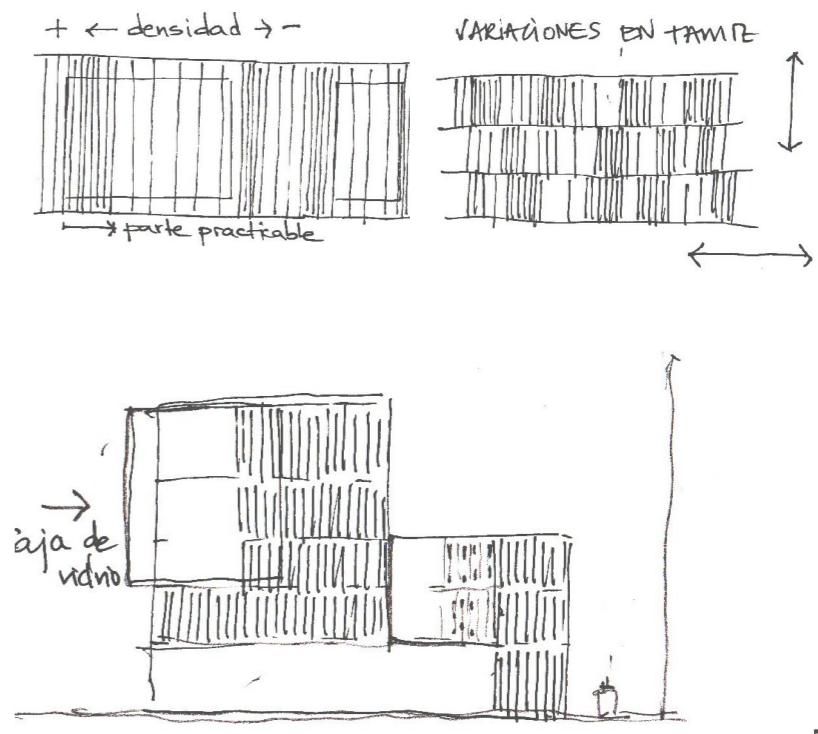 + ← densidad → -
VARIACIONES EN TAMIZ
parte practicable
aja de
vidrio